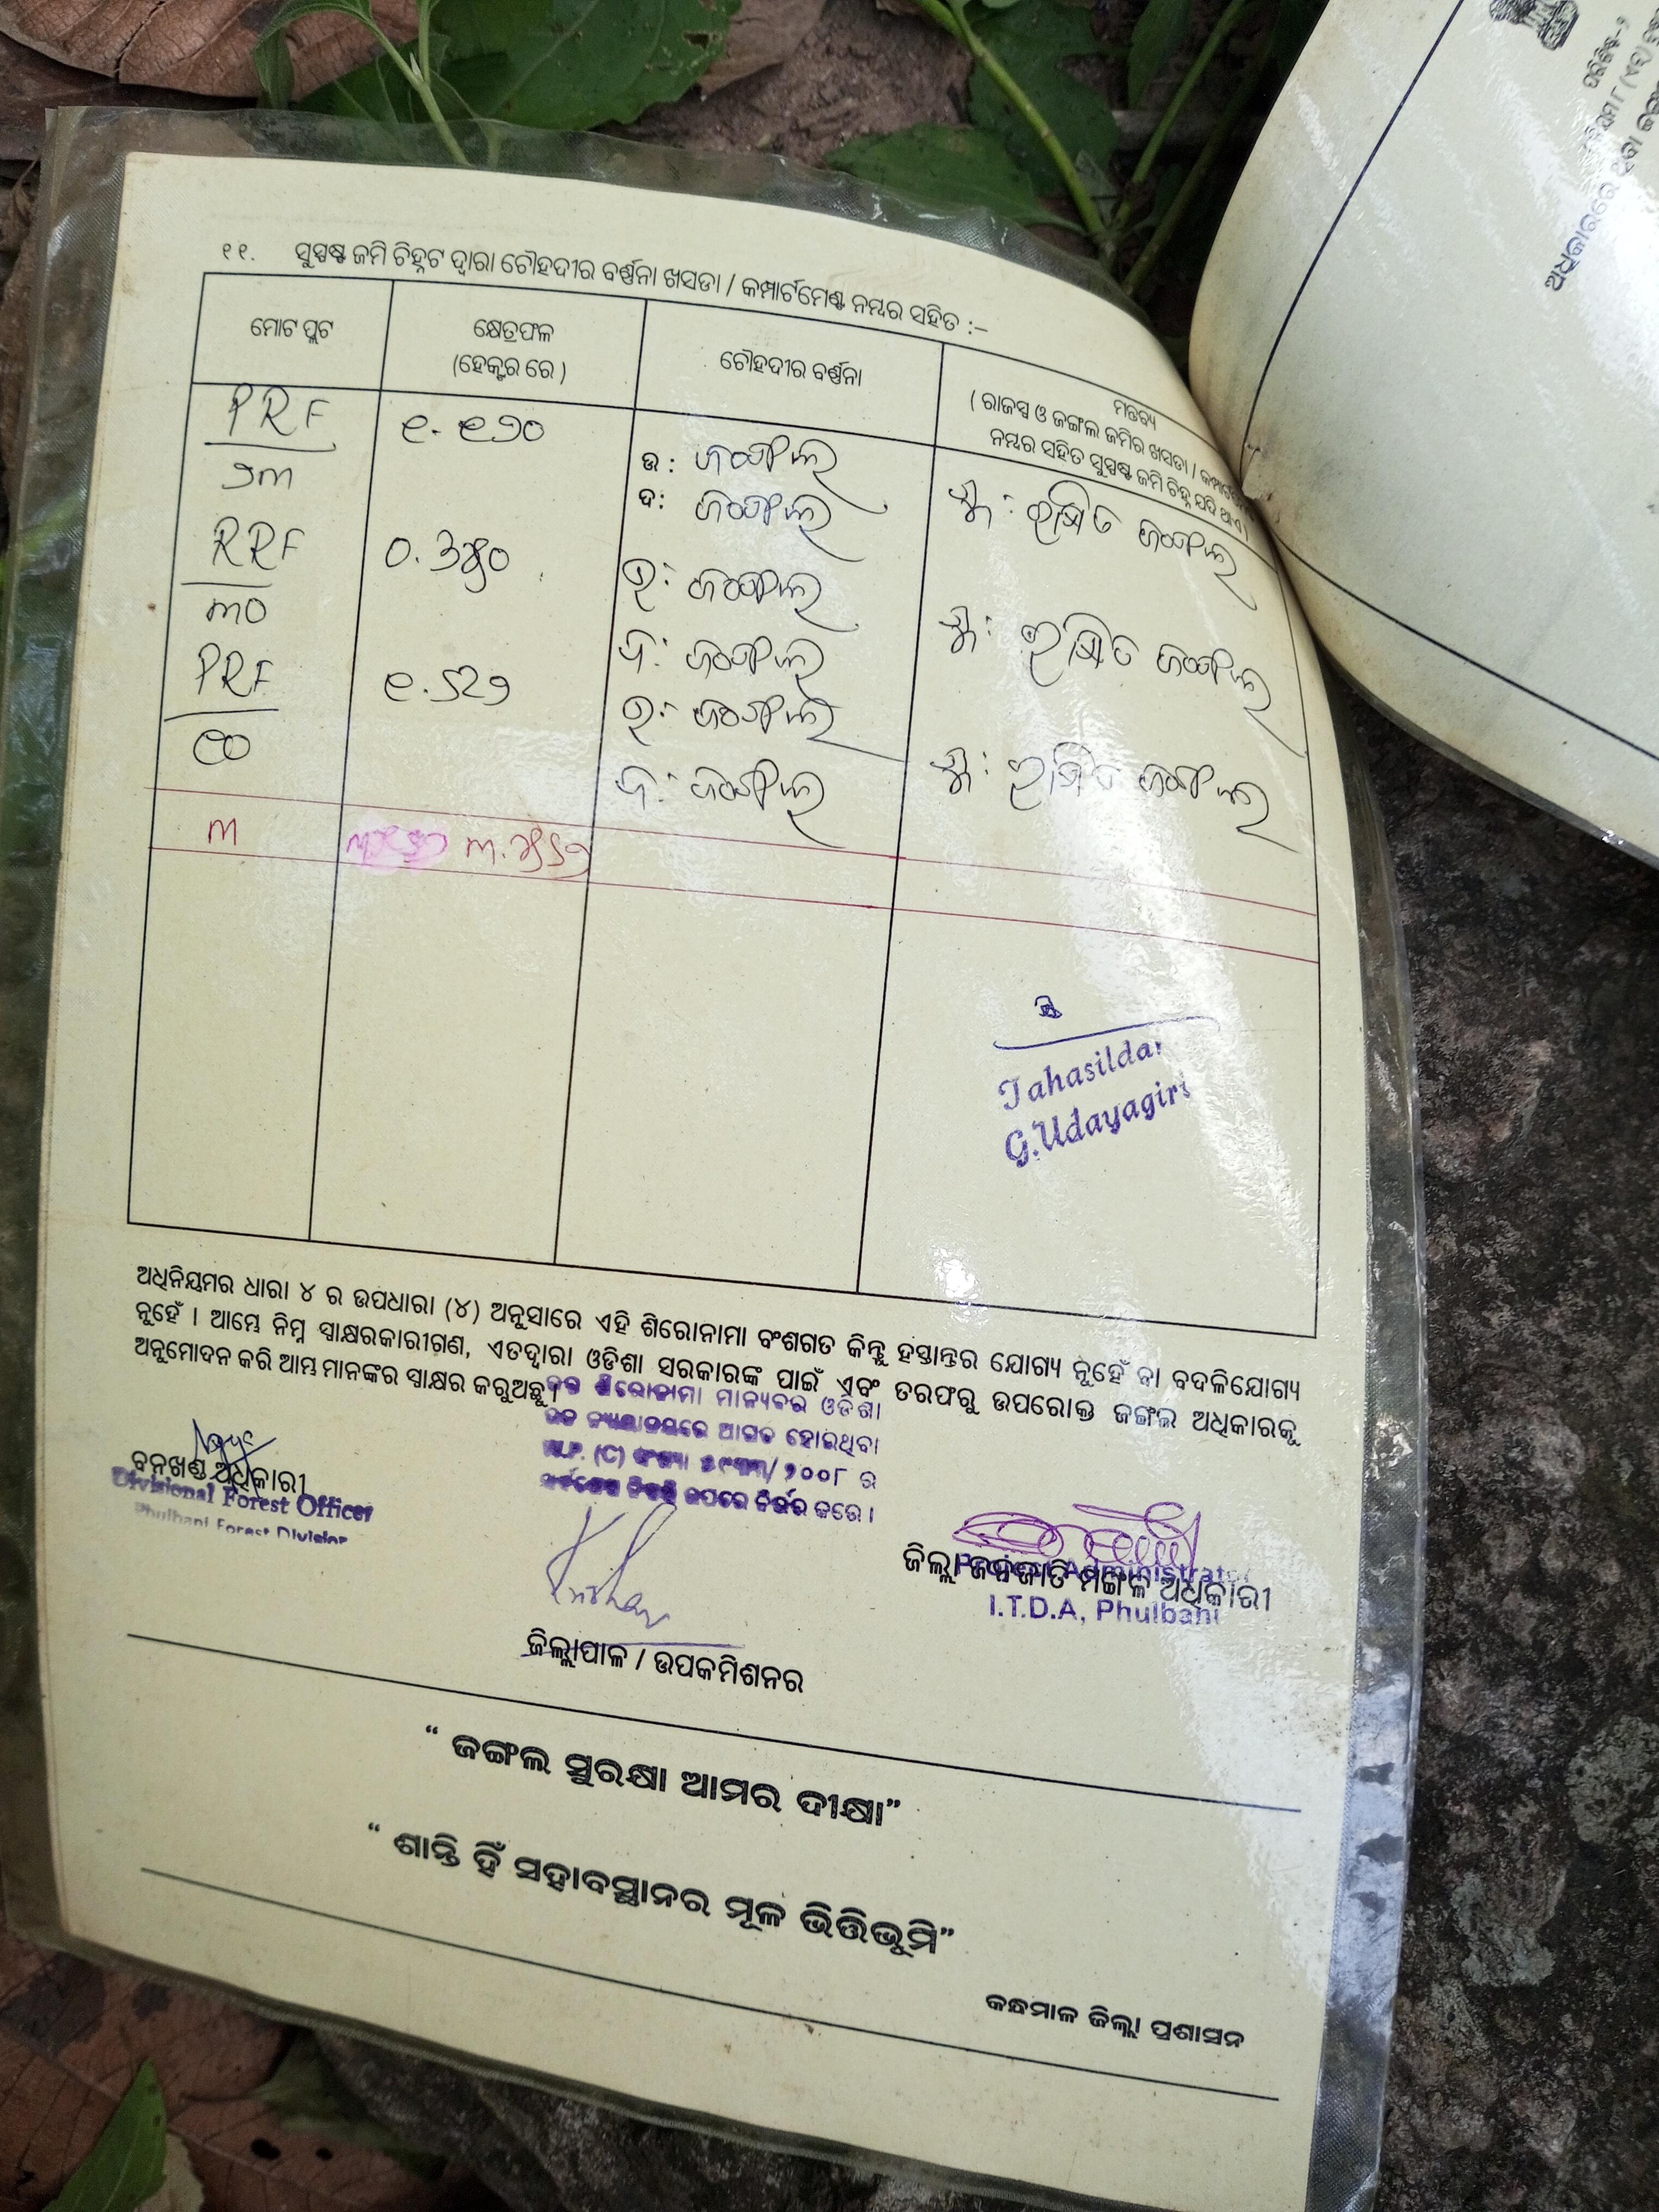 ୧୧. ସୁସ୍ପଷ୍ଟ ଜମି ଚିହ୍ନଟ ଦ୍ୱାରା ଚୌହଦୀର ବର୍ଣ୍ଣନା ଖସଡା / କମ୍ପାର୍ଟମେଣ୍ଟ ନମ୍ବର ସହିତ :–
ମୋଟ ପ୍ଲଟ
କ୍ଷେତ୍ରଫଳ
(ହେକ୍ଟର ରେ)
ଚୌହଦୀର ବର୍ଣ୍ଣନା
ମନ୍ତବ୍ୟ
( ରାଜସ୍ୱ ଓ ଜଙ୍ଗଲ ଜମିର ଖସଡା /
ନମ୍ବର ସହିତ ସୁସ୍ପଷ୍ଟ ଜମି ଚିହ୍ନ ଯଦି ଥାଏ )
PRF
୨୩
୧.୧୨୦
ଉ: ଜଙ୍ଗଲ
ଦ: ଜଙ୍ଗଲ
ରକ୍ଷିତ ଜଙ୍ଗଲ
RRF
୩୦
ଉ: ଜଙ୍ଗଲ
ଦ: ଜଙ୍ଗଲ
ରକ୍ଷିତ ଜଙ୍ଗଲ
PRF
୧୦
ଉ: ଜଙ୍ଗଲ
ଦ: ଜଙ୍ଗଲ
ରକ୍ଷିତ ଜଙ୍ଗଲ
୩
Tahasildar
G.Udayagiri
ଅଧିନିୟମର ଧାରା ୪ ର ଉପଧାରା (୪) ଅନୁସାରେ ଏହି ଶିରୋନାମା ବଂଶଗତ କିନ୍ତୁ ହସ୍ତାନ୍ତର ଯୋଗ୍ୟ ନୁହେଁ ବା ବଦଳିଯୋଗ୍ୟ
ନୁହେଁ । ଆମ୍ଭେ ନିମ୍ନ ସ୍ୱାକ୍ଷରକାରୀଗଣ, ଏତଦ୍ୱାରା ଓଡିଶା ସରକାରଙ୍କ ପାଇଁ ଏବଂ ତରଫରୁ ଉପରୋକ୍ତ ଜଙ୍ଗଲ ଅଧିକାରକୁ
ଅନୁମୋଦନ କରି ଆମ୍ଭ ମାନଙ୍କର ସ୍ୱାକ୍ଷର କରୁଅଛୁ ।
ଶିରୋନାମା ମାନ୍ୟବର ଓଡିଶା
ଆଗତ ହୋଇଥିବା
(C) ସଂଖ୍ୟା /୨୦୦୮ ର
ଉପରେ ନିର୍ଭର କରେ ।
ବନଖଣ୍ଡ ଅଧିକାରୀ
Divisional Forest Officer
Phulbani Forest Division
ଜିଲ୍ଲାପାଳ / ଉପକମିଶନର
ଜିଲ୍ଲା ଜନଜାତି ମଙ୍ଗଳ ଅଧିକାରୀ
Administrator
I.T.D.A, Phulbani
“ ଜଙ୍ଗଲ ସୁରକ୍ଷା ଆମର ଦୀକ୍ଷା”
“ ଶାନ୍ତି ହିଁ ସହାବସ୍ଥାନର ମୂଳ ଭିତ୍ତିଭୂମି”
କନ୍ଧମାଳ ଜିଲ୍ଲା ପ୍ରଶାସନ